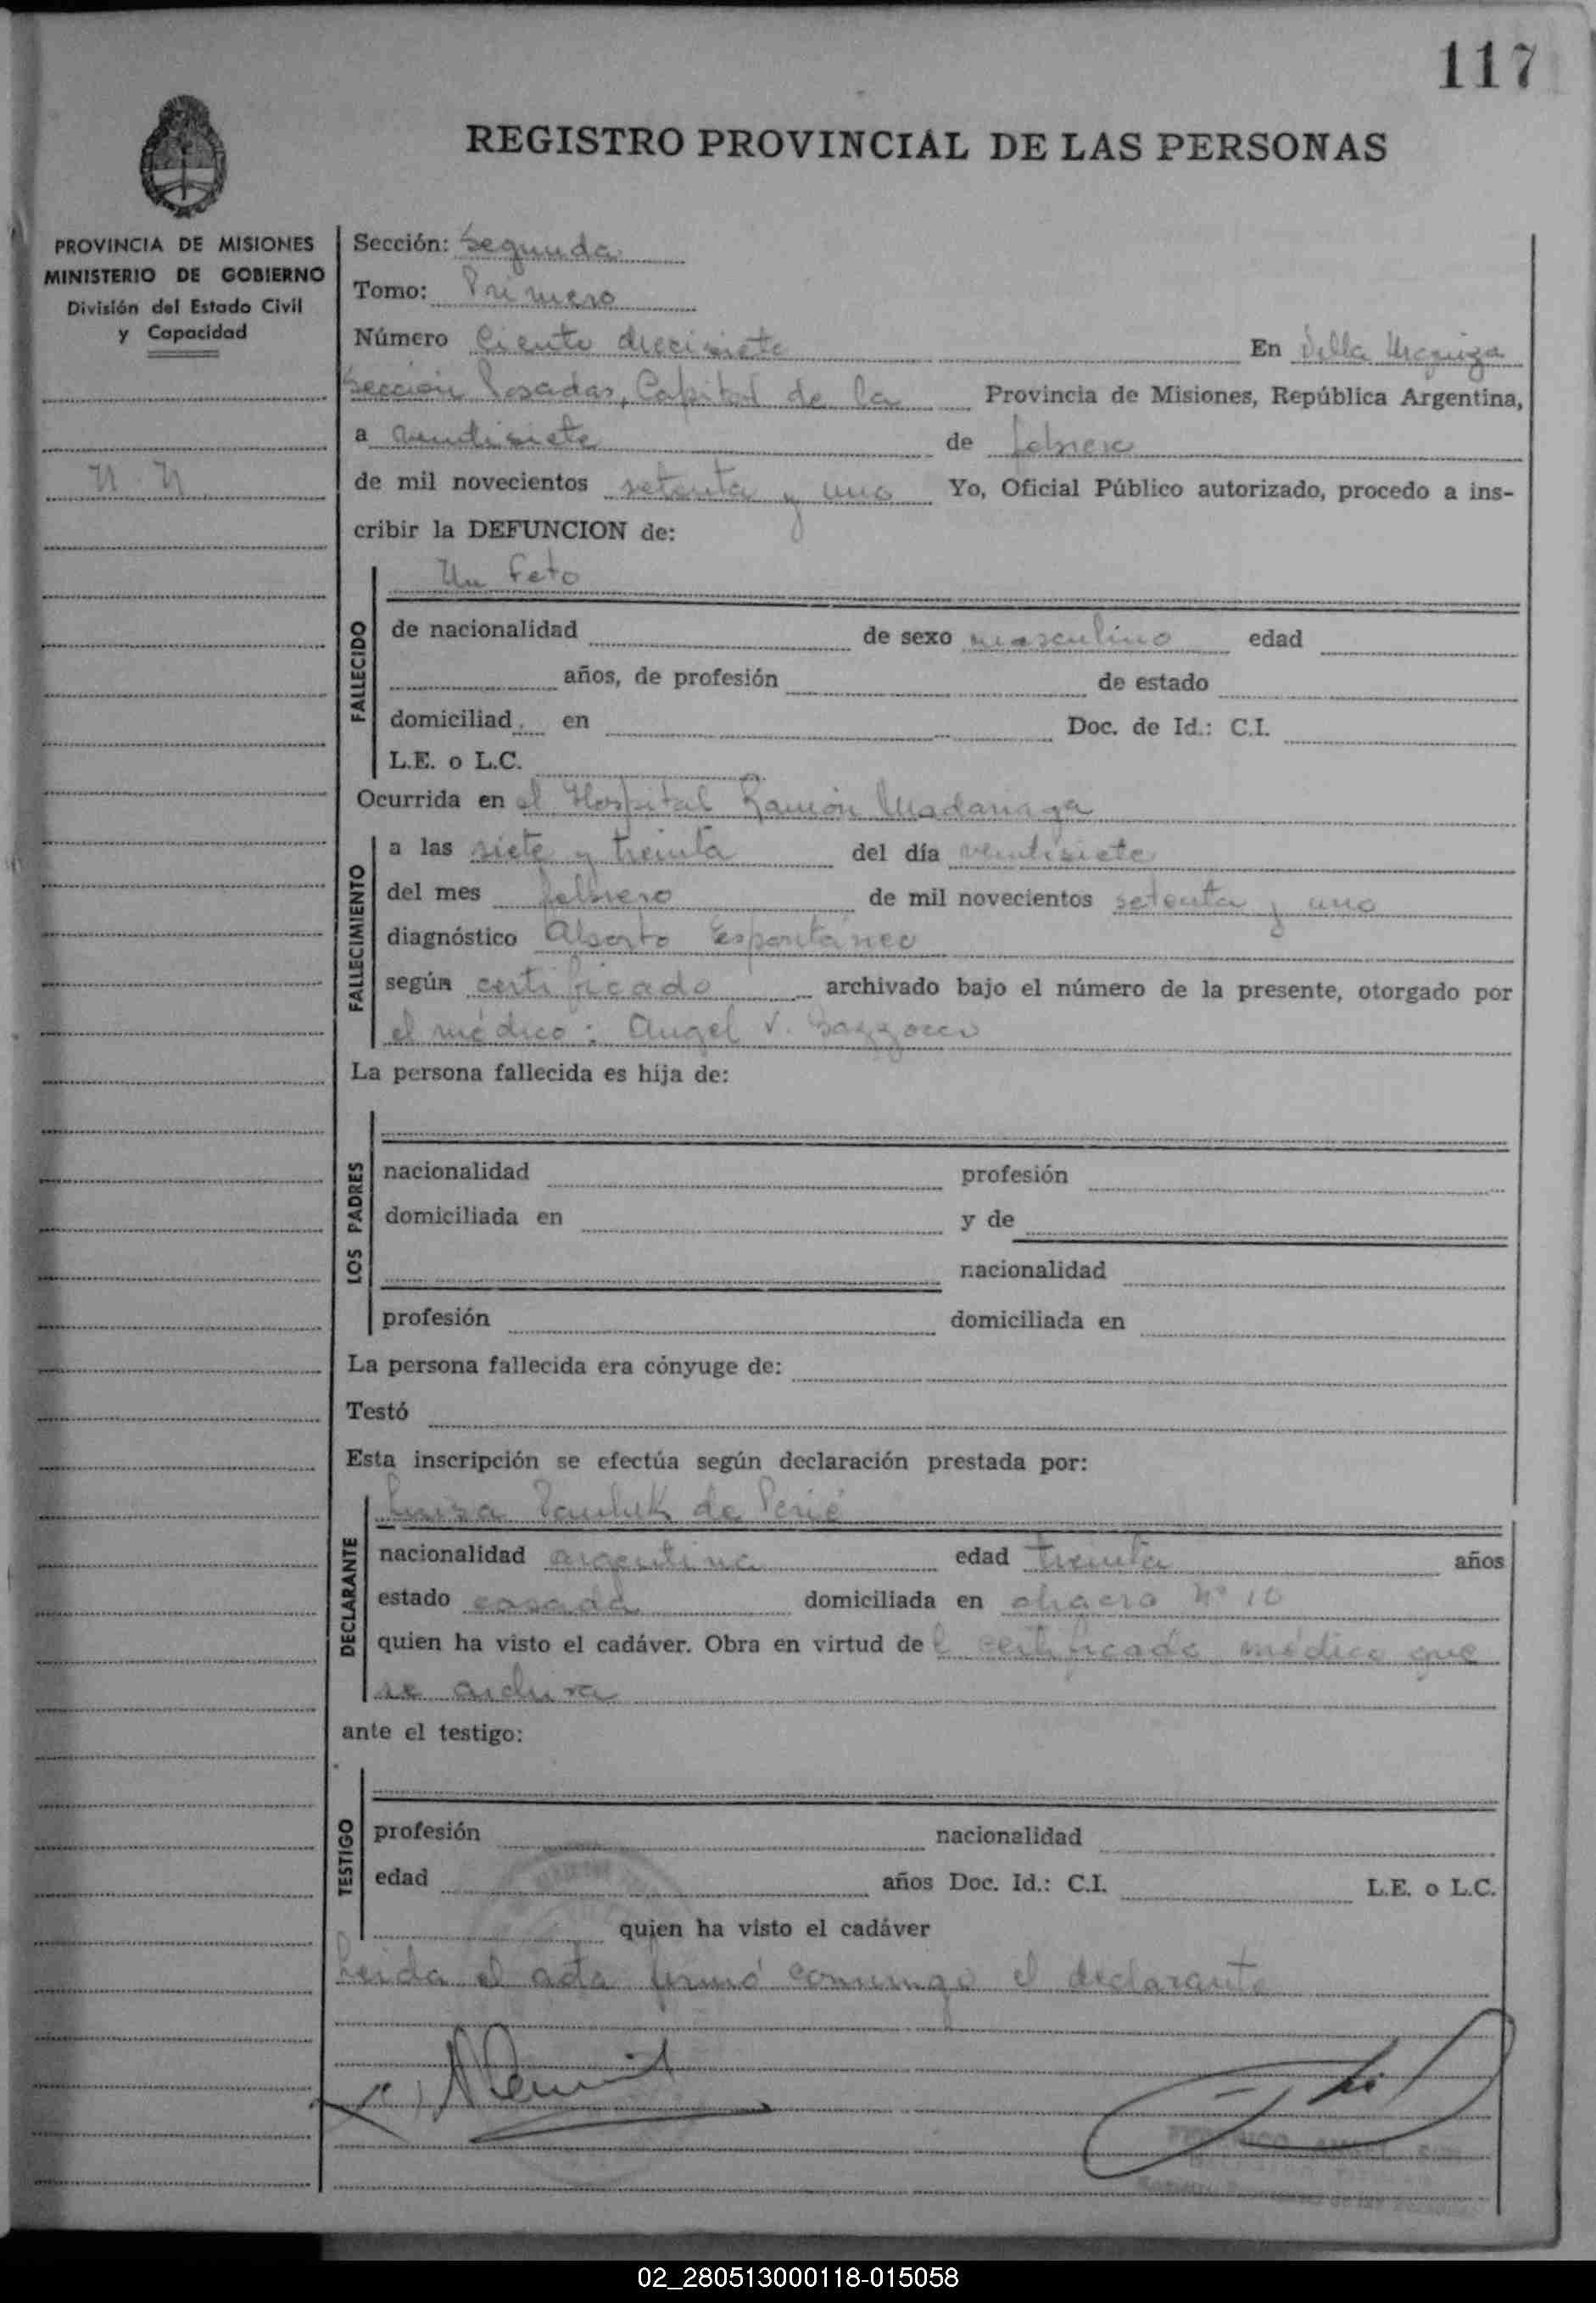 117
REGISTRO PROVINCIAL DE LAS PERSONAS
PROVINCIA DE MISIONES
MINISTERIO DE GOBIERNO
División del Estado Civil
y Capacidad
N. N.
Sección: Segunda
Tomo: Primero
Número Ciento diecisiete En Villa Urquiza
Sección Posadas, Capital de la Provincia de Misiones, República Argentina,
a ventisiete de febrero
de mil novecientos setenta y uno Yo, Oficial Público autorizado, procedo a ins-
cribir la DEFUNCION de:
Un Feto
FALLECIDO
de nacionalidad de sexo masculino edad
años, de profesión de estado
domiciliad en Doc. de Id.: C.I.
L.E. o L.C.
Ocurrida en el Hospital Ramón Madariaga
FALLECIMIENTO
a las siete y treinta del día ventisiete
del mes febrero de mil novecientos setenta y uno
diagnóstico Aborto Espontáneo
según certificado archivado bajo el número de la presente, otorgado por
el médico: Angel V.
La persona fallecida es hija de:
LOS PADRES
nacionalidad profesión
domiciliada en y de
nacionalidad
profesión domiciliada en
La persona fallecida era cónyuge de:
Testó
Esta inscripción se efectúa según declaración prestada por:
DECLARANTE
de
nacionalidad argentina edad treinta años
estado casada domiciliada en chacra Nº 10
quien ha visto el cadáver. Obra en virtud del certificado médico que
se archiva
ante el testigo:
TESTIGO
profesión nacionalidad
edad años Doc. Id.: C.I. L.E. o L.C.
quien ha visto el cadáver
Leida el acta firmó conmigo el declarante
02_280513000118-015058